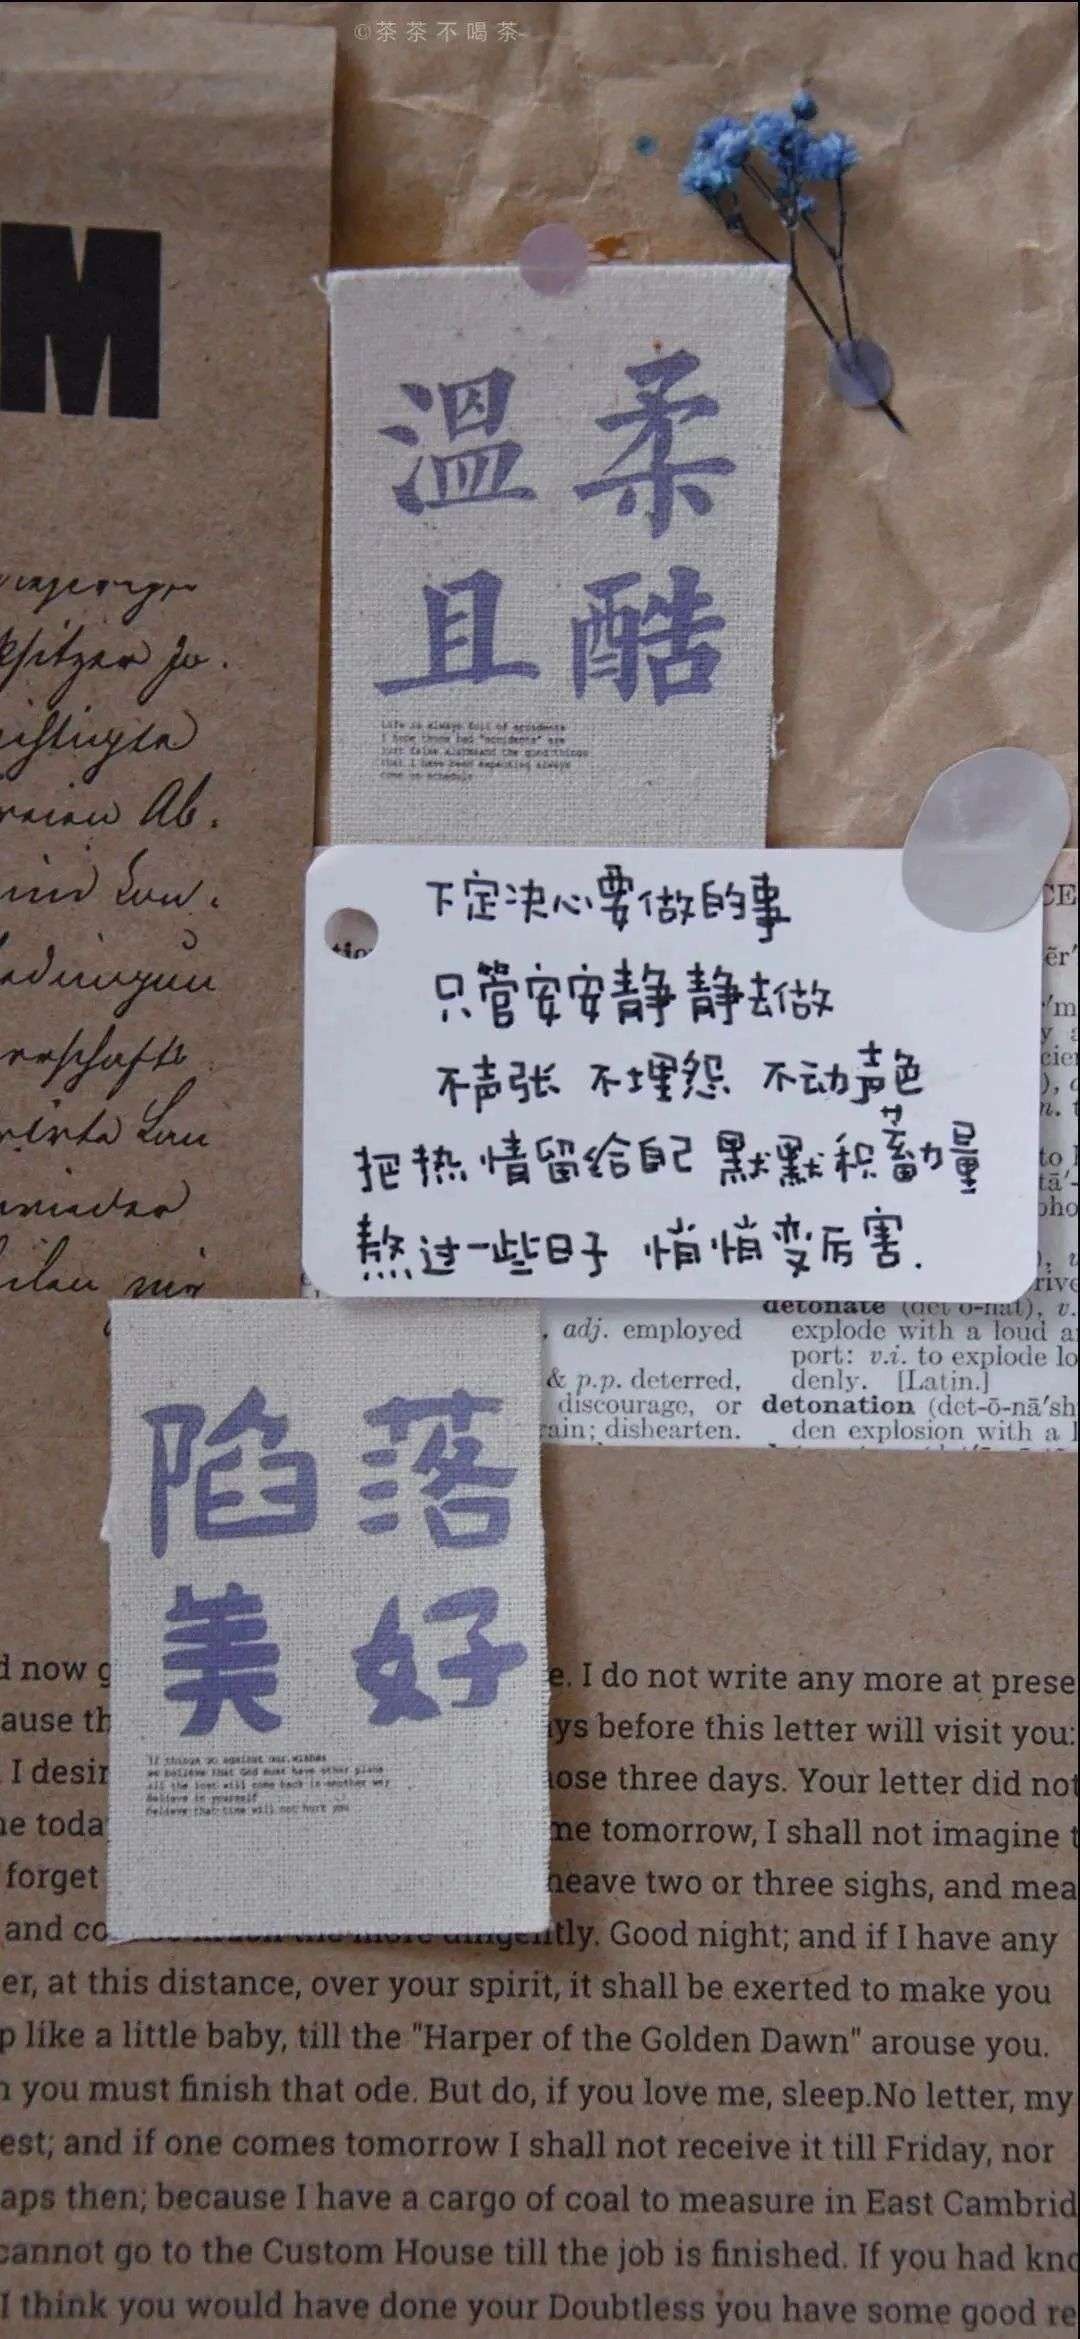 ©茶茶不喝茶-
M
溫柔
且酷
Life is always full of accidents
I hope those bad "accidents" are
just false alarms and the good things
that I have been expecting always
come on schedule
下定决心要做的事
只管安安静静去做
不声张 不埋怨 不动声色
把热情留给自己 默默积蓄力量
熬过一些日子 悄悄变厉害.
, adj. employed
& p.p. deterred,
discourage, or
rain; dishearten.
detonate (det'o-nāt), v.
explode with a loud a
port: v.i. to explode lo
denly. [Latin.]
detonation (det-ō-nā'sh
den explosion with a l
陷落
美好
If things go against our wishes
we believe that God must have other plans
all the lost will come back in another way
Believe in yourself
Believe that time will not hurt you
d now g e. I do not write any more at prese
ause th ys before this letter will visit you:
. I desir hose three days. Your letter did not
he toda me tomorrow, I shall not imagine t
forget heave two or three sighs, and mea
and co the more diligently. Good night; and if I have any
er, at this distance, over your spirit, it shall be exerted to make you
p like a little baby, till the "Harper of the Golden Dawn" arouse you.
n you must finish that ode. But do, if you love me, sleep.No letter, my
est; and if one comes tomorrow I shall not receive it till Friday, nor
aps then; because I have a cargo of coal to measure in East Cambrid
cannot go to the Custom House till the job is finished. If you had kno
I think you would have done your Doubtless you have some good re